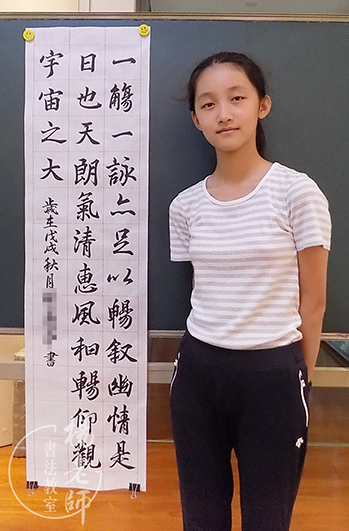 一觴一詠亦足以暢叙幽情是
日也天朗氣清惠風和暢仰觀
宇宙之大
歲在戊戌秋月
書
楊老師
書法教室